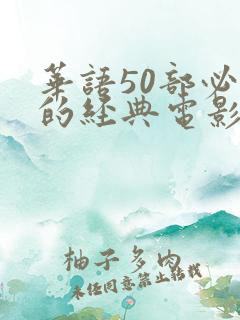 華語50部必
的經典電影
柚子多肉
未经同意禁止转载